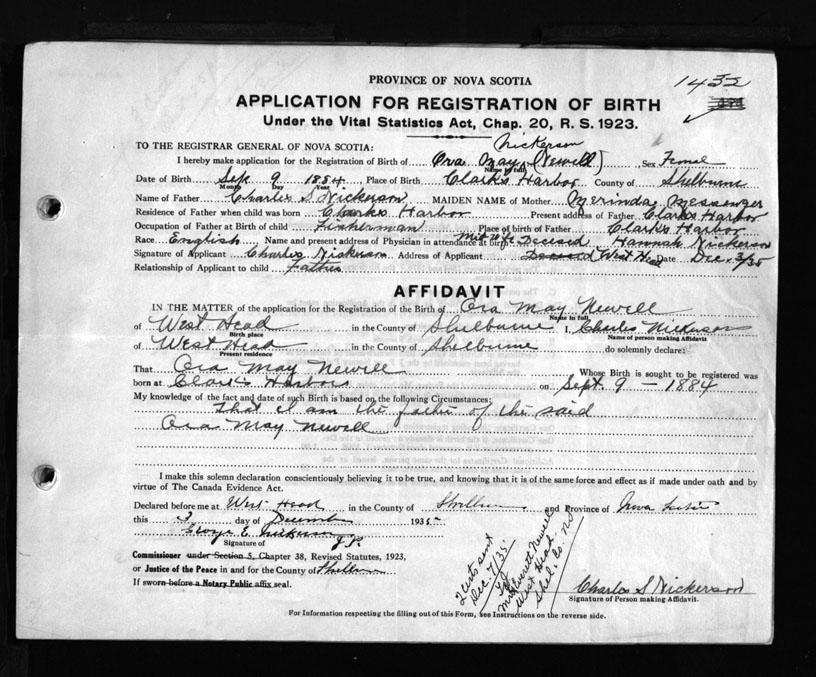 PROVINCE OF NOVA SCOTIA
1432
APPLICATION FOR REGISTRATION OF BIRTH
Under the Vital Statistics Act, Chap. 20, R. S. 1923.
TO THE REGISTRAR GENERAL OF NOVA SCOTIA:
Nickerson
I hereby make application for the Registration of Birth of Ora May (Newell) Sex Female
Name in full
Date of Birth Sept 9 1884 Place of Birth Clarks Harbor County of Shelburne
Month Day Year
Name of Father Charles S. Nickerson MAIDEN NAME of Mother Merinda Messenger
Residence of Father when child was born Clarks Harbor Present address of Father Clarks Harbor
Occupation of Father at Birth of child Fisherman Place of birth of Father Clarks Harbor
Race English Name and present address of Physician in attendance at birth Mid Wife Deceased Hannah Nickerson
Signature of Applicant Charles Nickerson Address of Applicant Deceased West Head Date Dec. 3/35
Relationship of Applicant to child Father
AFFIDAVIT
IN THE MATTER of the application for the Registration of the Birth of Ora May Newell
Name in full
of West Head in the County of Shelburne I, Charles Nickerson
Birth place Name of person making Affidavit
of West Head in the County of Shelburne do solemnly declare:
Present residence
That Ora May Newell Whose Birth is sought to be registered was
born at Clarks Harbor on Sept. 9 – 1884
My knowledge of the fact and date of such Birth is based on the following Circumstances:
That I am the father of the said
Ora May Newell
I make this solemn declaration conscientiously believing it to be true, and knowing that it is of the same force and effect as if made under oath and by
virtue of The Canada Evidence Act.
Declared before me at West Head in the County of Shelburne and Province of Nova Scotia
this 3 day of December 1935
George E. Nickerson J.P.
Signature of
Commissioner under Section 5, Chapter 38, Revised Statutes, 1923,
or Justice of the Peace in and for the County of Shelburne
If sworn before a Notary Public affix seal.
2 certs sent
Dec 7/35
To
Newell
West Head
Shel. Co. NS
Charles S Nickerson
Signature of Person making Affidavit.
For Information respecting the filling out of this Form, see Instructions on the reverse side.